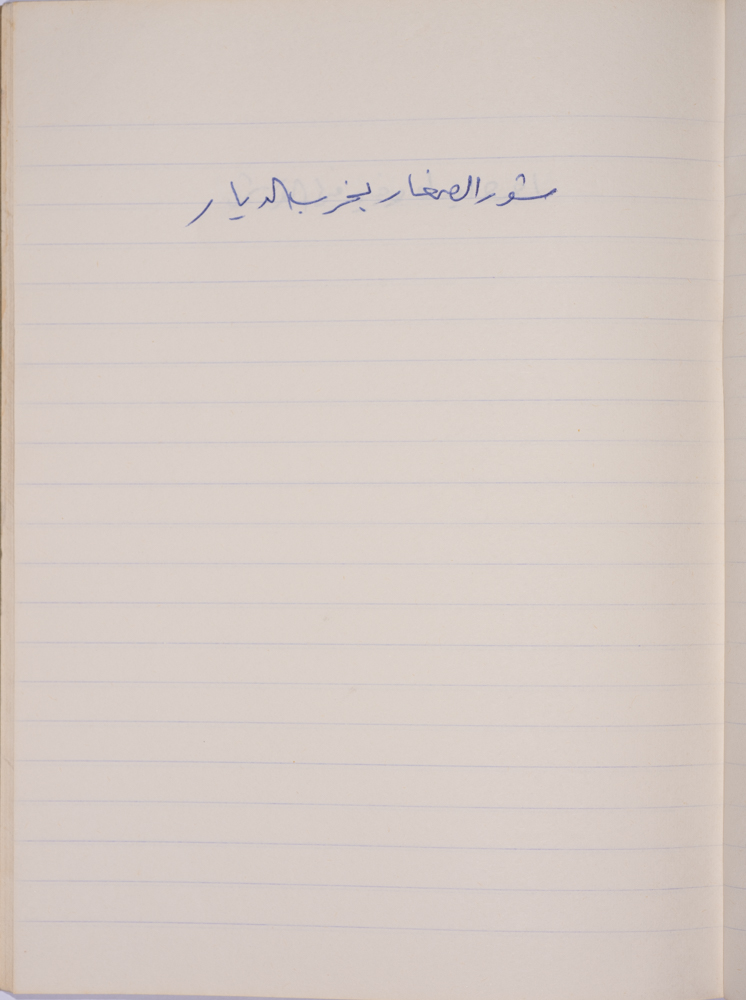 شور الصغار يخرب الديار